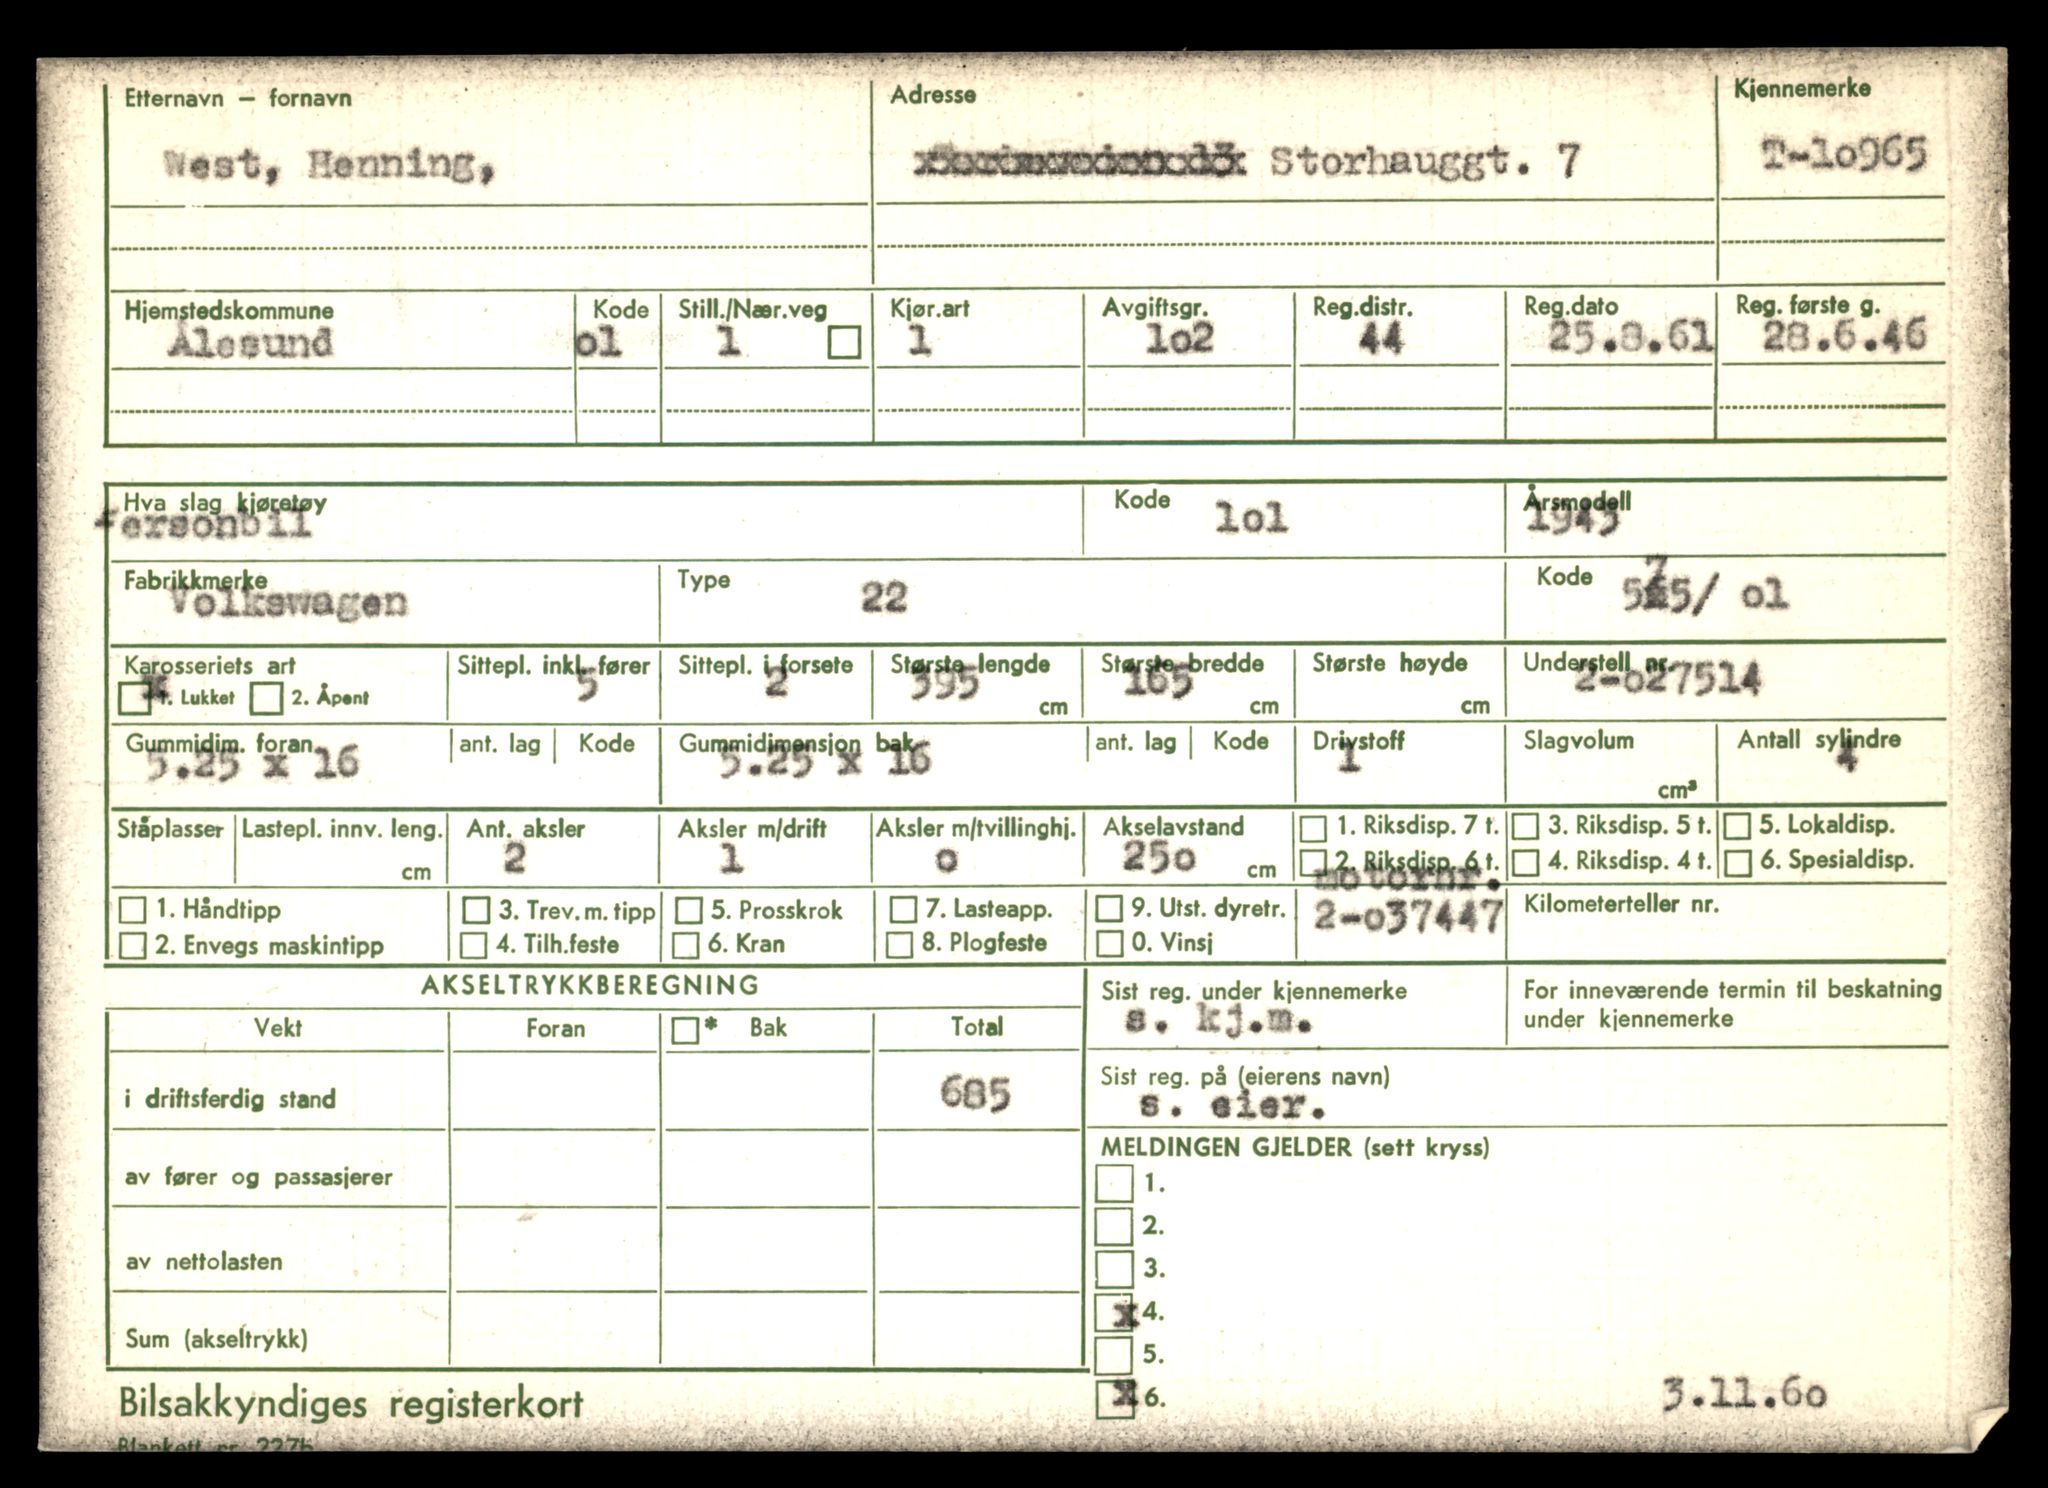 Etternavn – fornavn Adresse Kjennemerke
West, Henning, Storhauggt. 7 T-lo965
Hjemstedskommune Kode Still./Nær.veg Kjør.art Avgiftsgr. Reg.distr. Reg.dato Reg. første g.
Ålesund ol 1 1 lo2 44 25.8.61 28.6.46
Hva slag kjøretøy Kode lol Årsmodell
Personbil 1945
Fabrikkmerke Type Kode
Volkswagen 22 575/ ol
Karosseriets art Sittepl. inkl. fører Sittepl. i forsete Største lengde Største bredde Største høyde Understell nr.
x 1. Lukket 2. Åpent 5 2 395 cm 165 cm cm 2-o27514
Gummidim. foran ant. lag Kode Gummidimensjon bak ant. lag Kode Drivstoff Slagvolum Antall sylindre
5.25 x 16 5.25 x 16 1 cm³ 4
Ståplasser Lastepl. innv. leng. Ant. aksler Aksler m/drift Aksler m/tvillinghj. Akselavstand 1. Riksdisp. 7 t. 3. Riksdisp. 5 t. 5. Lokaldisp.
cm 2 1 o 25o cm 2. Riksdisp. 6 t. 4. Riksdisp. 4 t. 6. Spesialdisp.
motornr.
1. Håndtipp 3. Trev. m. tipp 5. Prosskrok 7. Lasteapp. 9. Utst. dyretr. 2-o37447 Kilometerteller nr.
2. Envegs maskintipp 4. Tilh.feste 6. Kran 8. Plogfeste 0. Vinsj
AKSELTRYKKBEREGNING
Sist reg. under kjennemerke For inneværende termin til beskatning
s. kj.m. under kjennemerke
Vekt Foran * Bak Total
Sist reg. på (eierens navn)
i driftsferdig stand 685 s. eier.
MELDINGEN GJELDER (sett kryss)
av fører og passasjerer 1.
2.
av nettolasten 3.
x 4.
Sum (akseltrykk) 5.
x 6. 3.11.6o
Bilsakkyndiges registerkort
Blankett nr. 227b